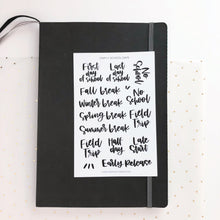 First day of school
Last day of school
No School
Fall break
Winter break
No School
Spring break
Field Trip
Summer break
Field Trip
Half day
Late Start
Early Release